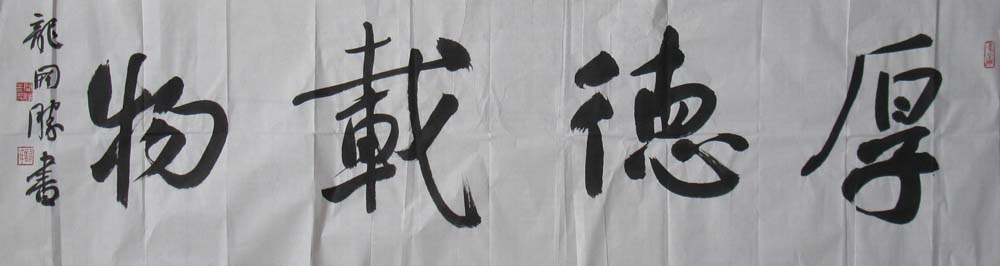 厚德載物
龍國勝書